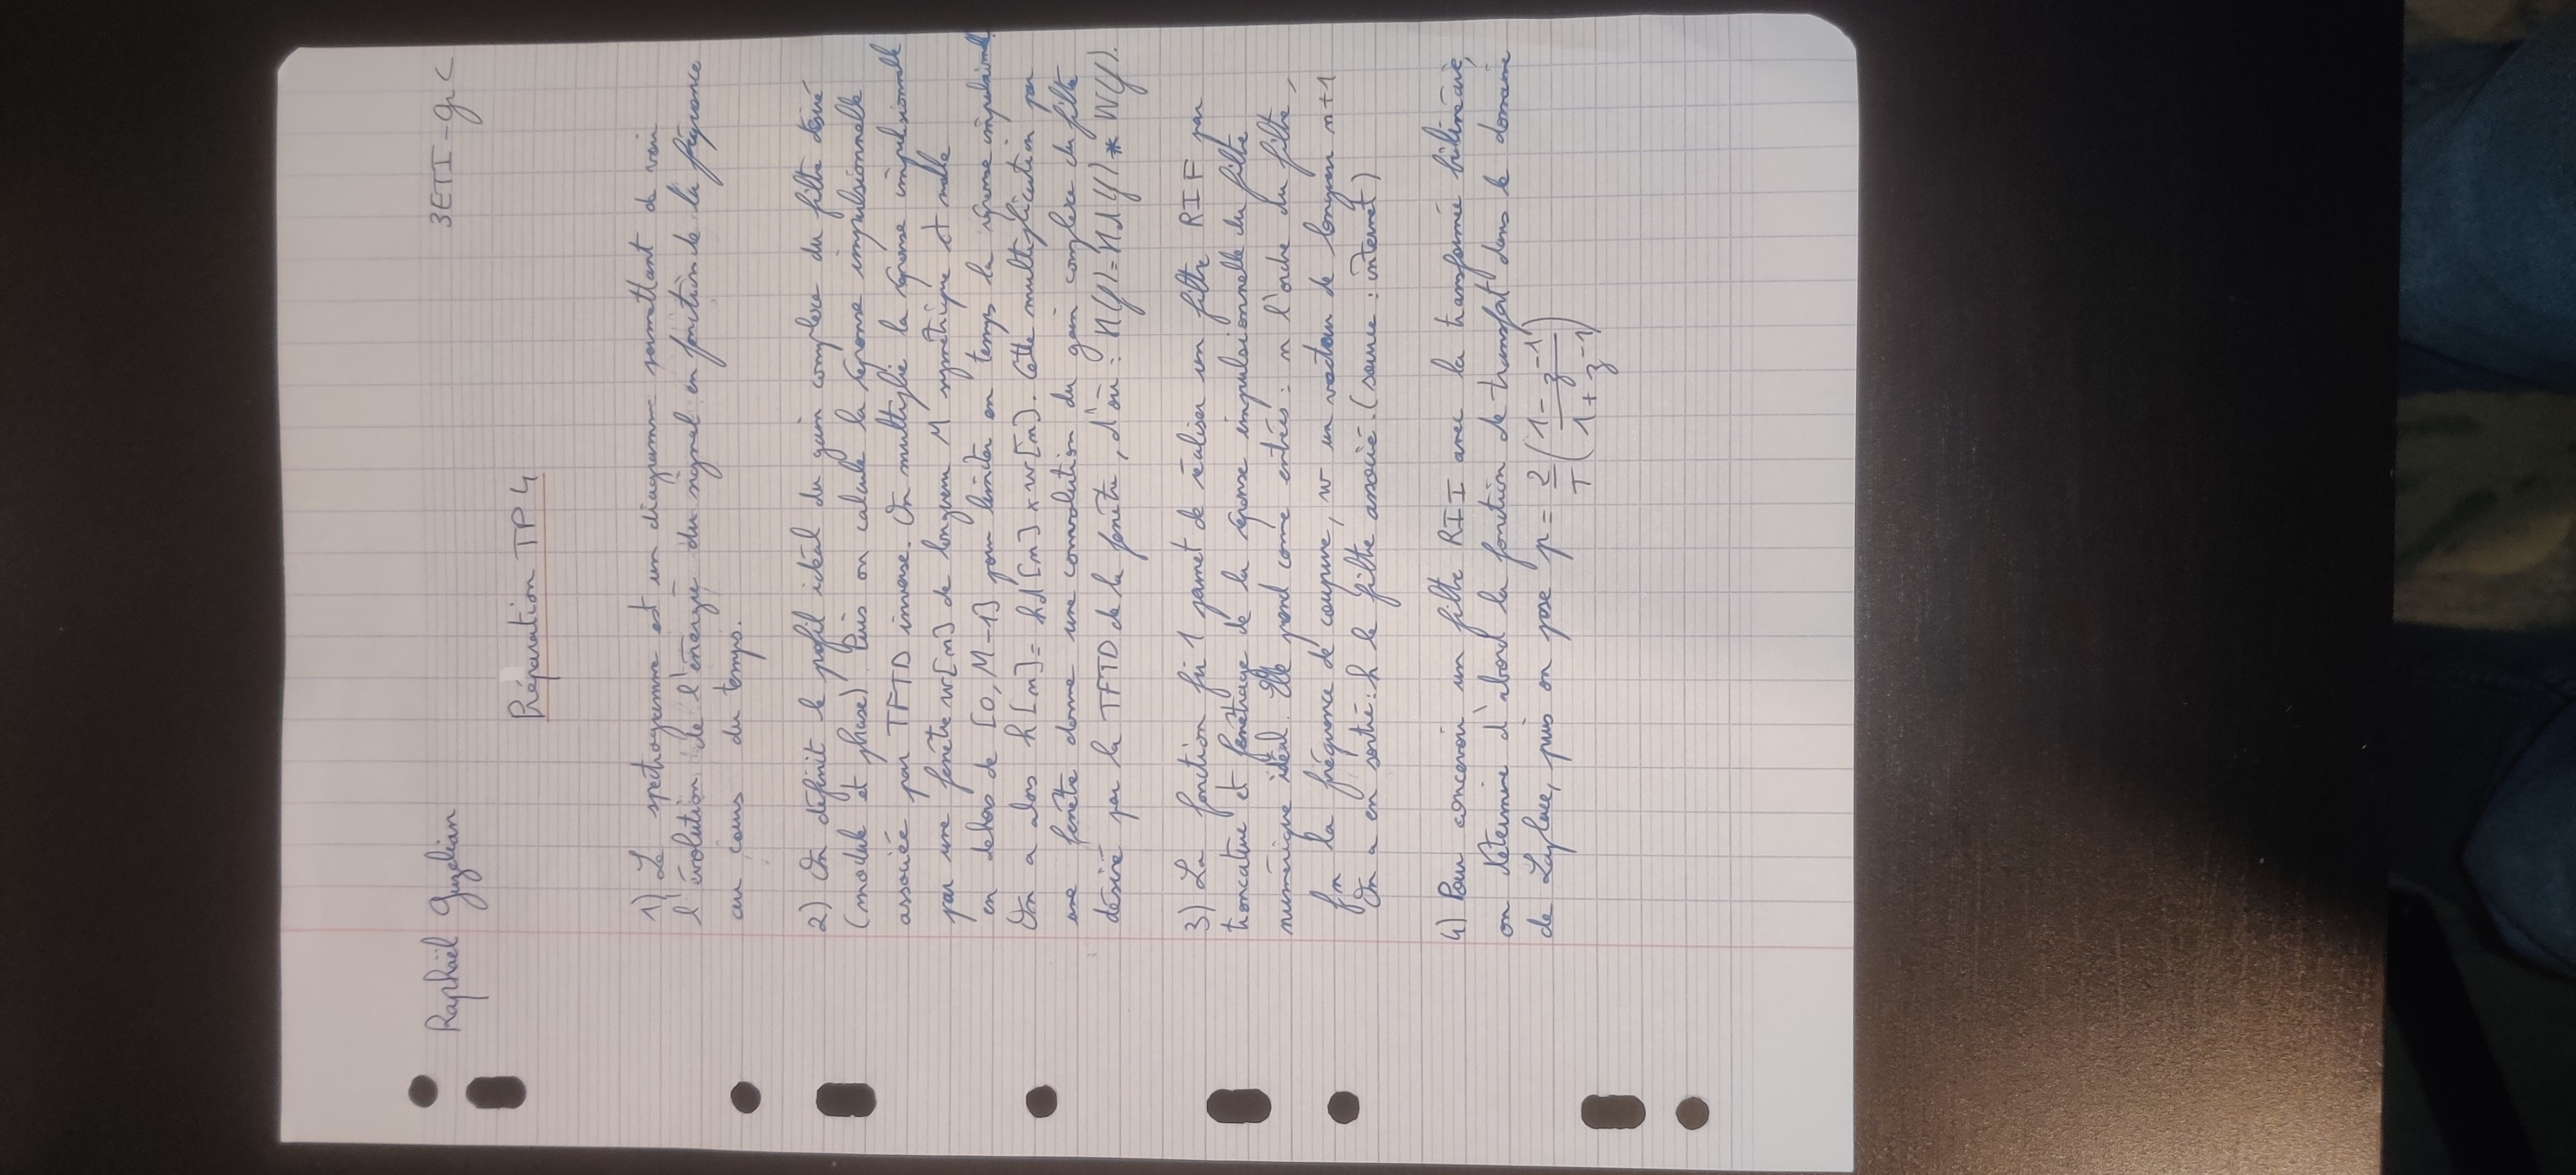 Raphaël Guzelian 3ETI - gr C
Préparation TP 4
1) Le spectrogramme est un diagramme permettant de voir
l'évolution de l'énergie du signal en fonction de la fréquence
au cours du temps.
2) On définit le profil idéal du gain complexe du filtre désiré
(module et phase). Puis on calcule la réponse impulsionnelle
associée par TFTD inverse. On multiplie la réponse impulsionnelle
par une fenêtre w[n] de longueur M symétrique et nulle
en dehors de [0, M-1] pour limiter en temps la réponse impulsionnelle.
On a alors h[n] = hd[n] x w[n]. Cette multiplication par
une fenêtre donne une convolution du gain complexe du filtre
désiré par la TFTD de la fenêtre, d'où : H(f) = Hd(f) * W(f).
3) La fonction fir 1 permet de réaliser un filtre RIF par
troncature et fenêtrage de la réponse impulsionnelle du filtre
numérique idéal. Elle prend comme entrées : n l'ordre du filtre,
fn la fréquence de coupure, w un vecteur de longueur n+1
On a en sortie : h le filtre associé. (source : internet)
4) Pour concevoir un filtre RII avec la transformée bilinéaire,
on détermine d'abord la fonction de transfert dans le domaine
de Laplace, puis on pose p = 2/T (1 - z^-1 / 1 + z^-1)